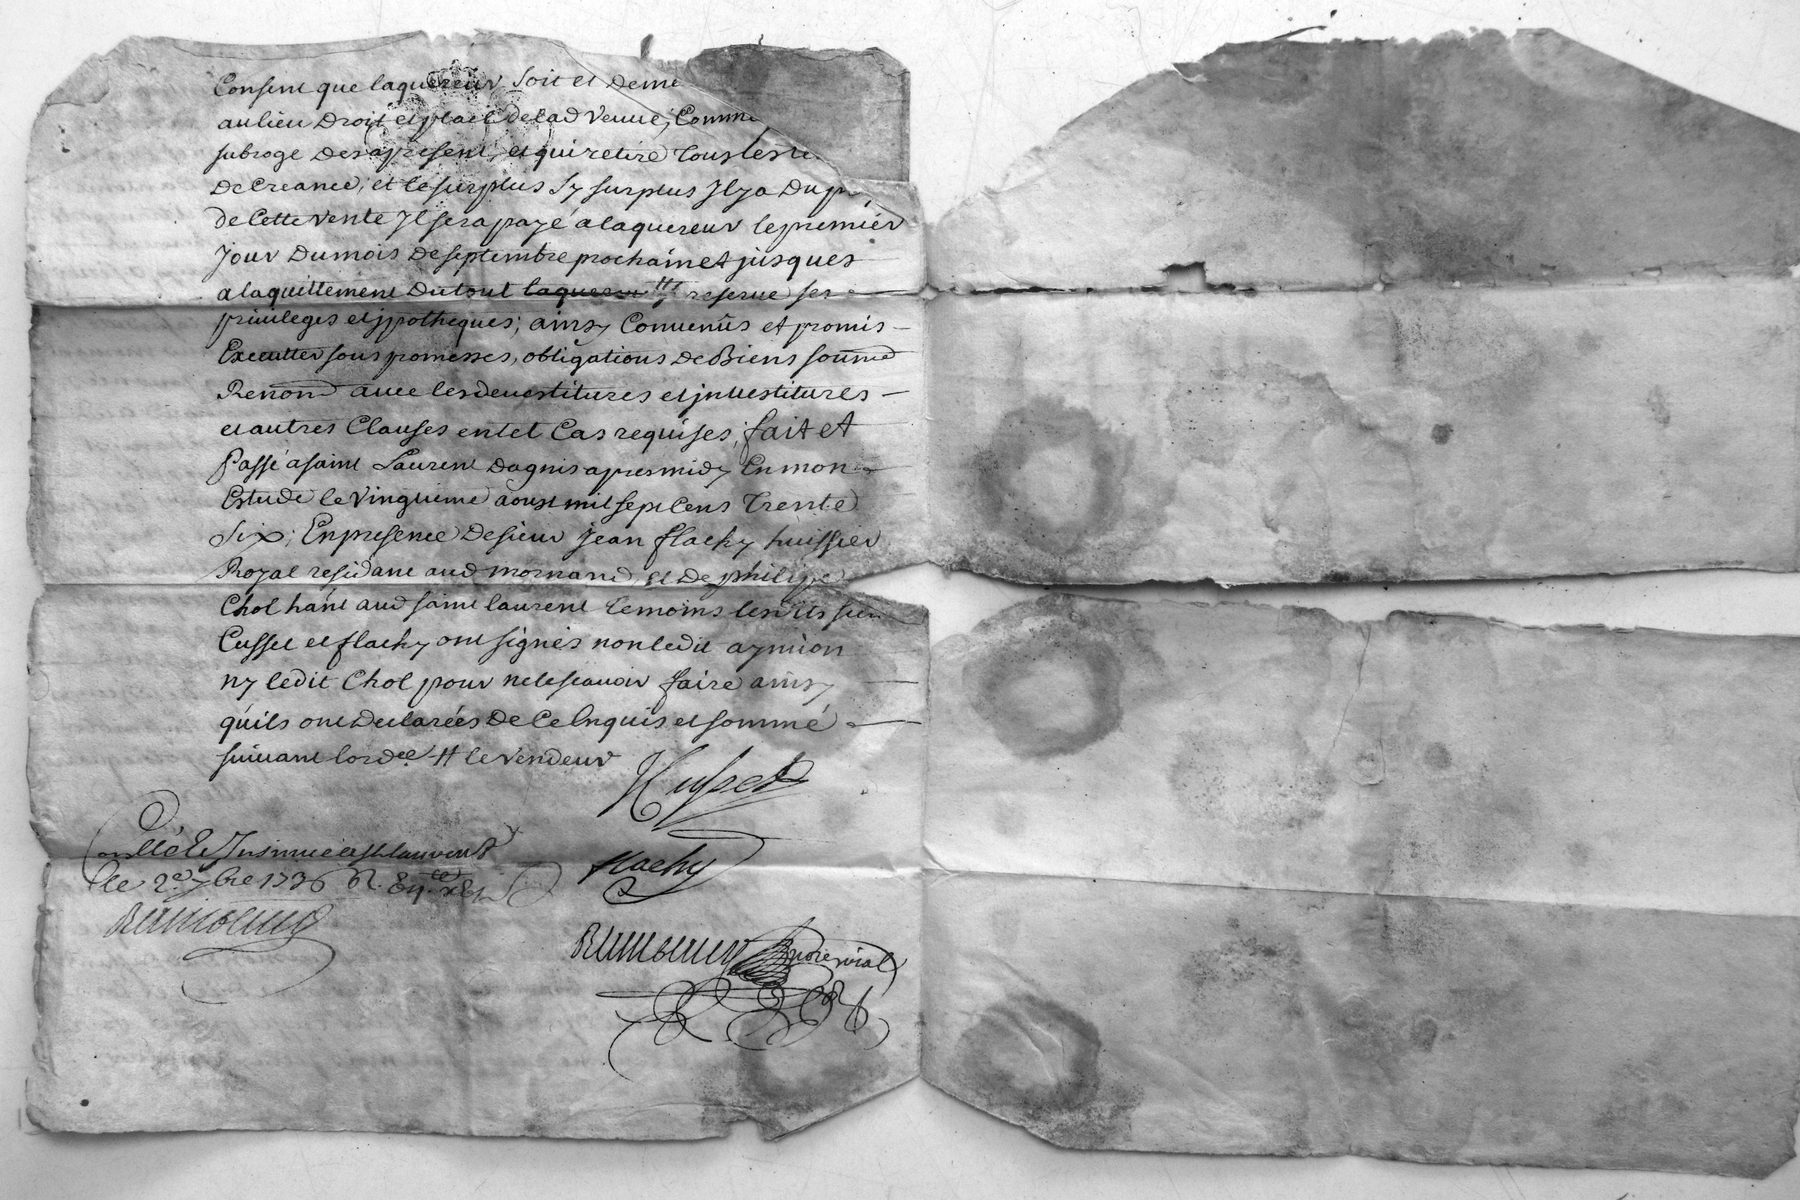 Consent que laquereur soit et deme
au lieu Droit et place de lad venue, Comme
subroge des apresent, et qui retire tous les
de Creance; et le surplus sy surplus Il ya Du
de Cette vente Il sera payé a laquereur le premier
Jour Dumois de septembre prochain et jusques
alaquittement Dutout laquereur # reserve ses
privileges et ypotheques; ainsy Convenûs et promis
Executter sous promesses, obligations de Biens soumd
Renond avec les devestitures et jnvestitures
et autres Clauses en tel Cas requises; fait et
Passé a saint Laurent Dagnis apres midy En mon
Estude le vingtieme aoust mil sept Cens Trente
Six; En presence De sieur jean flachy huissier
Royal residant aud mornand, et De philippe
Chol hant aud saint laurent temoins lesdits sieur
Cusset et flachy ont signés non ledit aymion
ny ledit Chol pour ne le scavoir faire ainsy
qu'ils ont Declarées De Ce Enquis et sommé
suivant lordce # le vendeur
flachy
Conllé et Insinué a st laurent
le 2e 7bre 1736